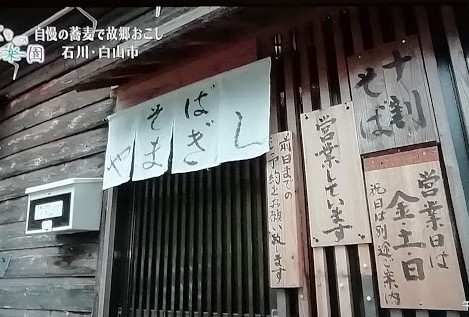 自慢の蕎麦で故郷おこし
石川・白山市
園
そば
やまぎし
十割
そば
営業しています
前日までの
ご予約をお願い致します
営業日は
金土・日
祝日は別途ご案内